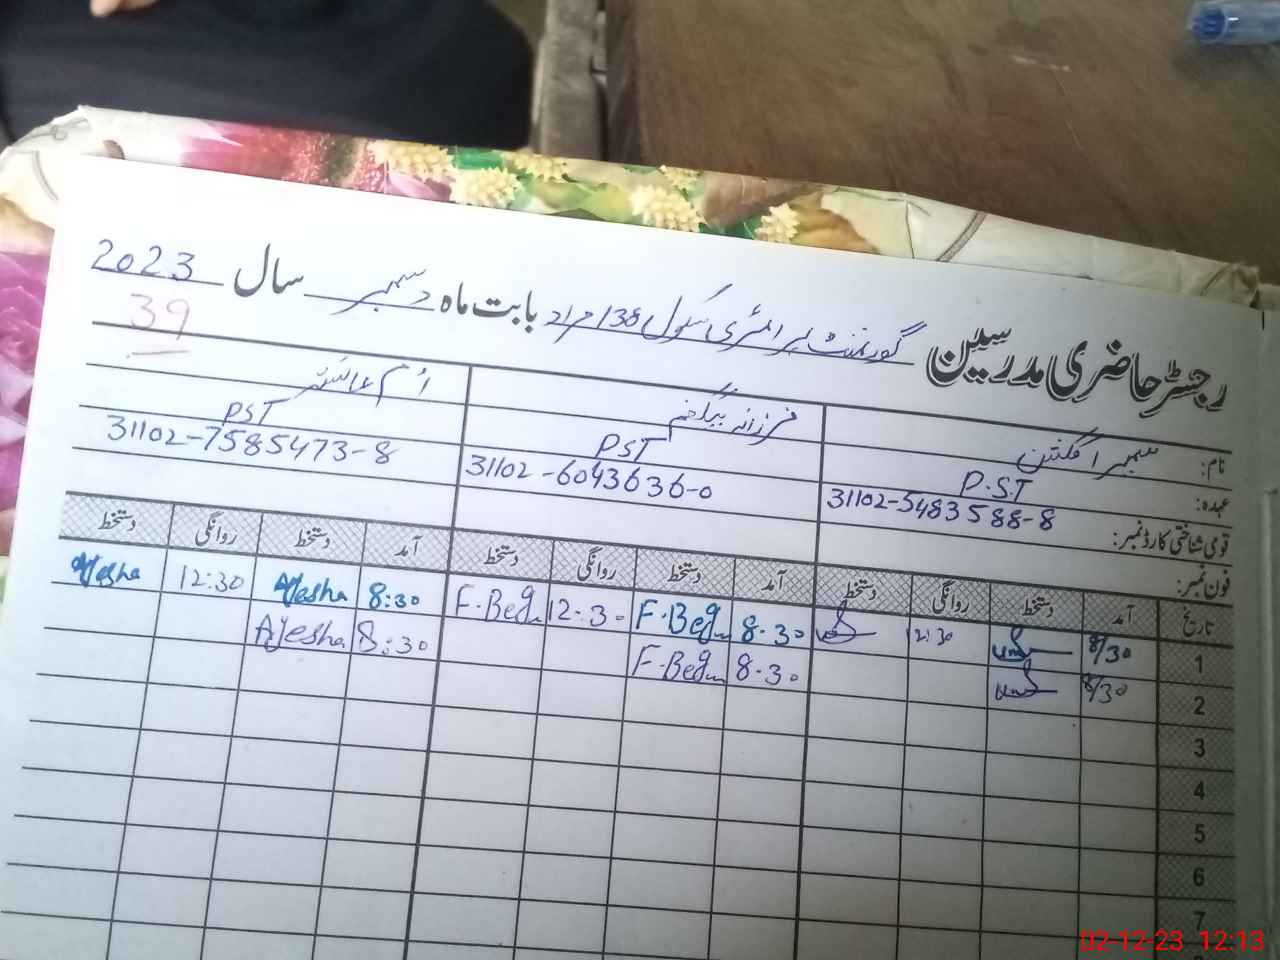 رجسٹر حاضری مدرسین گورنمنٹ پرائمری سکول 138 مراد بابت ماہ دسمبر سال 2023
39
نام: فرزانہ بیگم ام عائشہ
عہدہ: P.ST PST PST
قومی شناختی کارڈ نمبر: 31102-5483588-8 31102-6043636-0 31102-7585473-8
فون نمبر:
تاریخ آمد دستخط روانگی دستخط آمد دستخط روانگی دستخط آمد دستخط روانگی دستخط
1 8/30 12:30 8.30 F.Beg 12:30 F.Beg 8:30 Ayesha 12:30 Ayesha
2 8/30 8.30 F.Beg 8:30 Ayesha
3
4
5
6
7
02-12-23 12:13